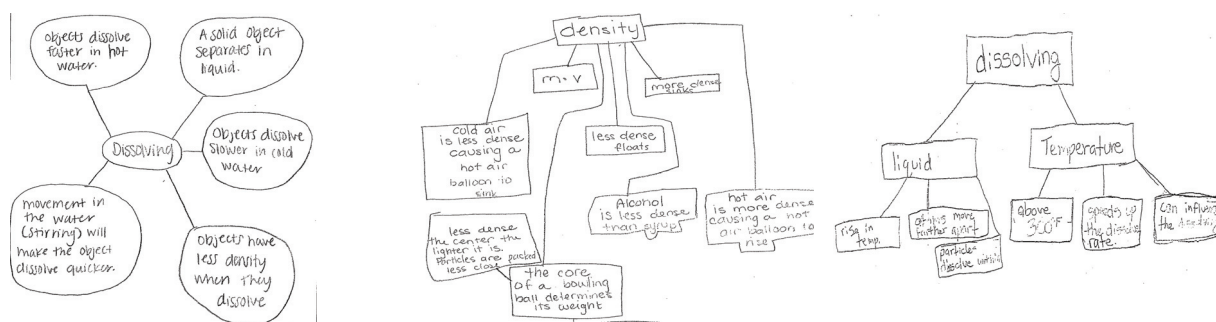 objects dissolve
faster in hot
water.
A solid object
separates in
liquid.
Dissolving
Objects dissolve
slower in cold
water
movement in
the water
(stirring) will
make the object
dissolve quicker.
Objects have
less density
when they
dissolve
density
m÷v
more dense
sinks
cold air
is less dense
causing a
hot air
balloon to
sink
less dense
floats
Alcohol
is less dense
than syrup
hot air
is more dense
causing a hot
air balloon to
rise
less dense
the center the
lighter it is.
Particles are packed
less close
the core
of a bowling
ball determines
its weight
dissolving
liquid
Temperature
rise in
temp.
more
further apart
particles
dissolve within
above
speeds up
the dissolve
rate.
can influence
the